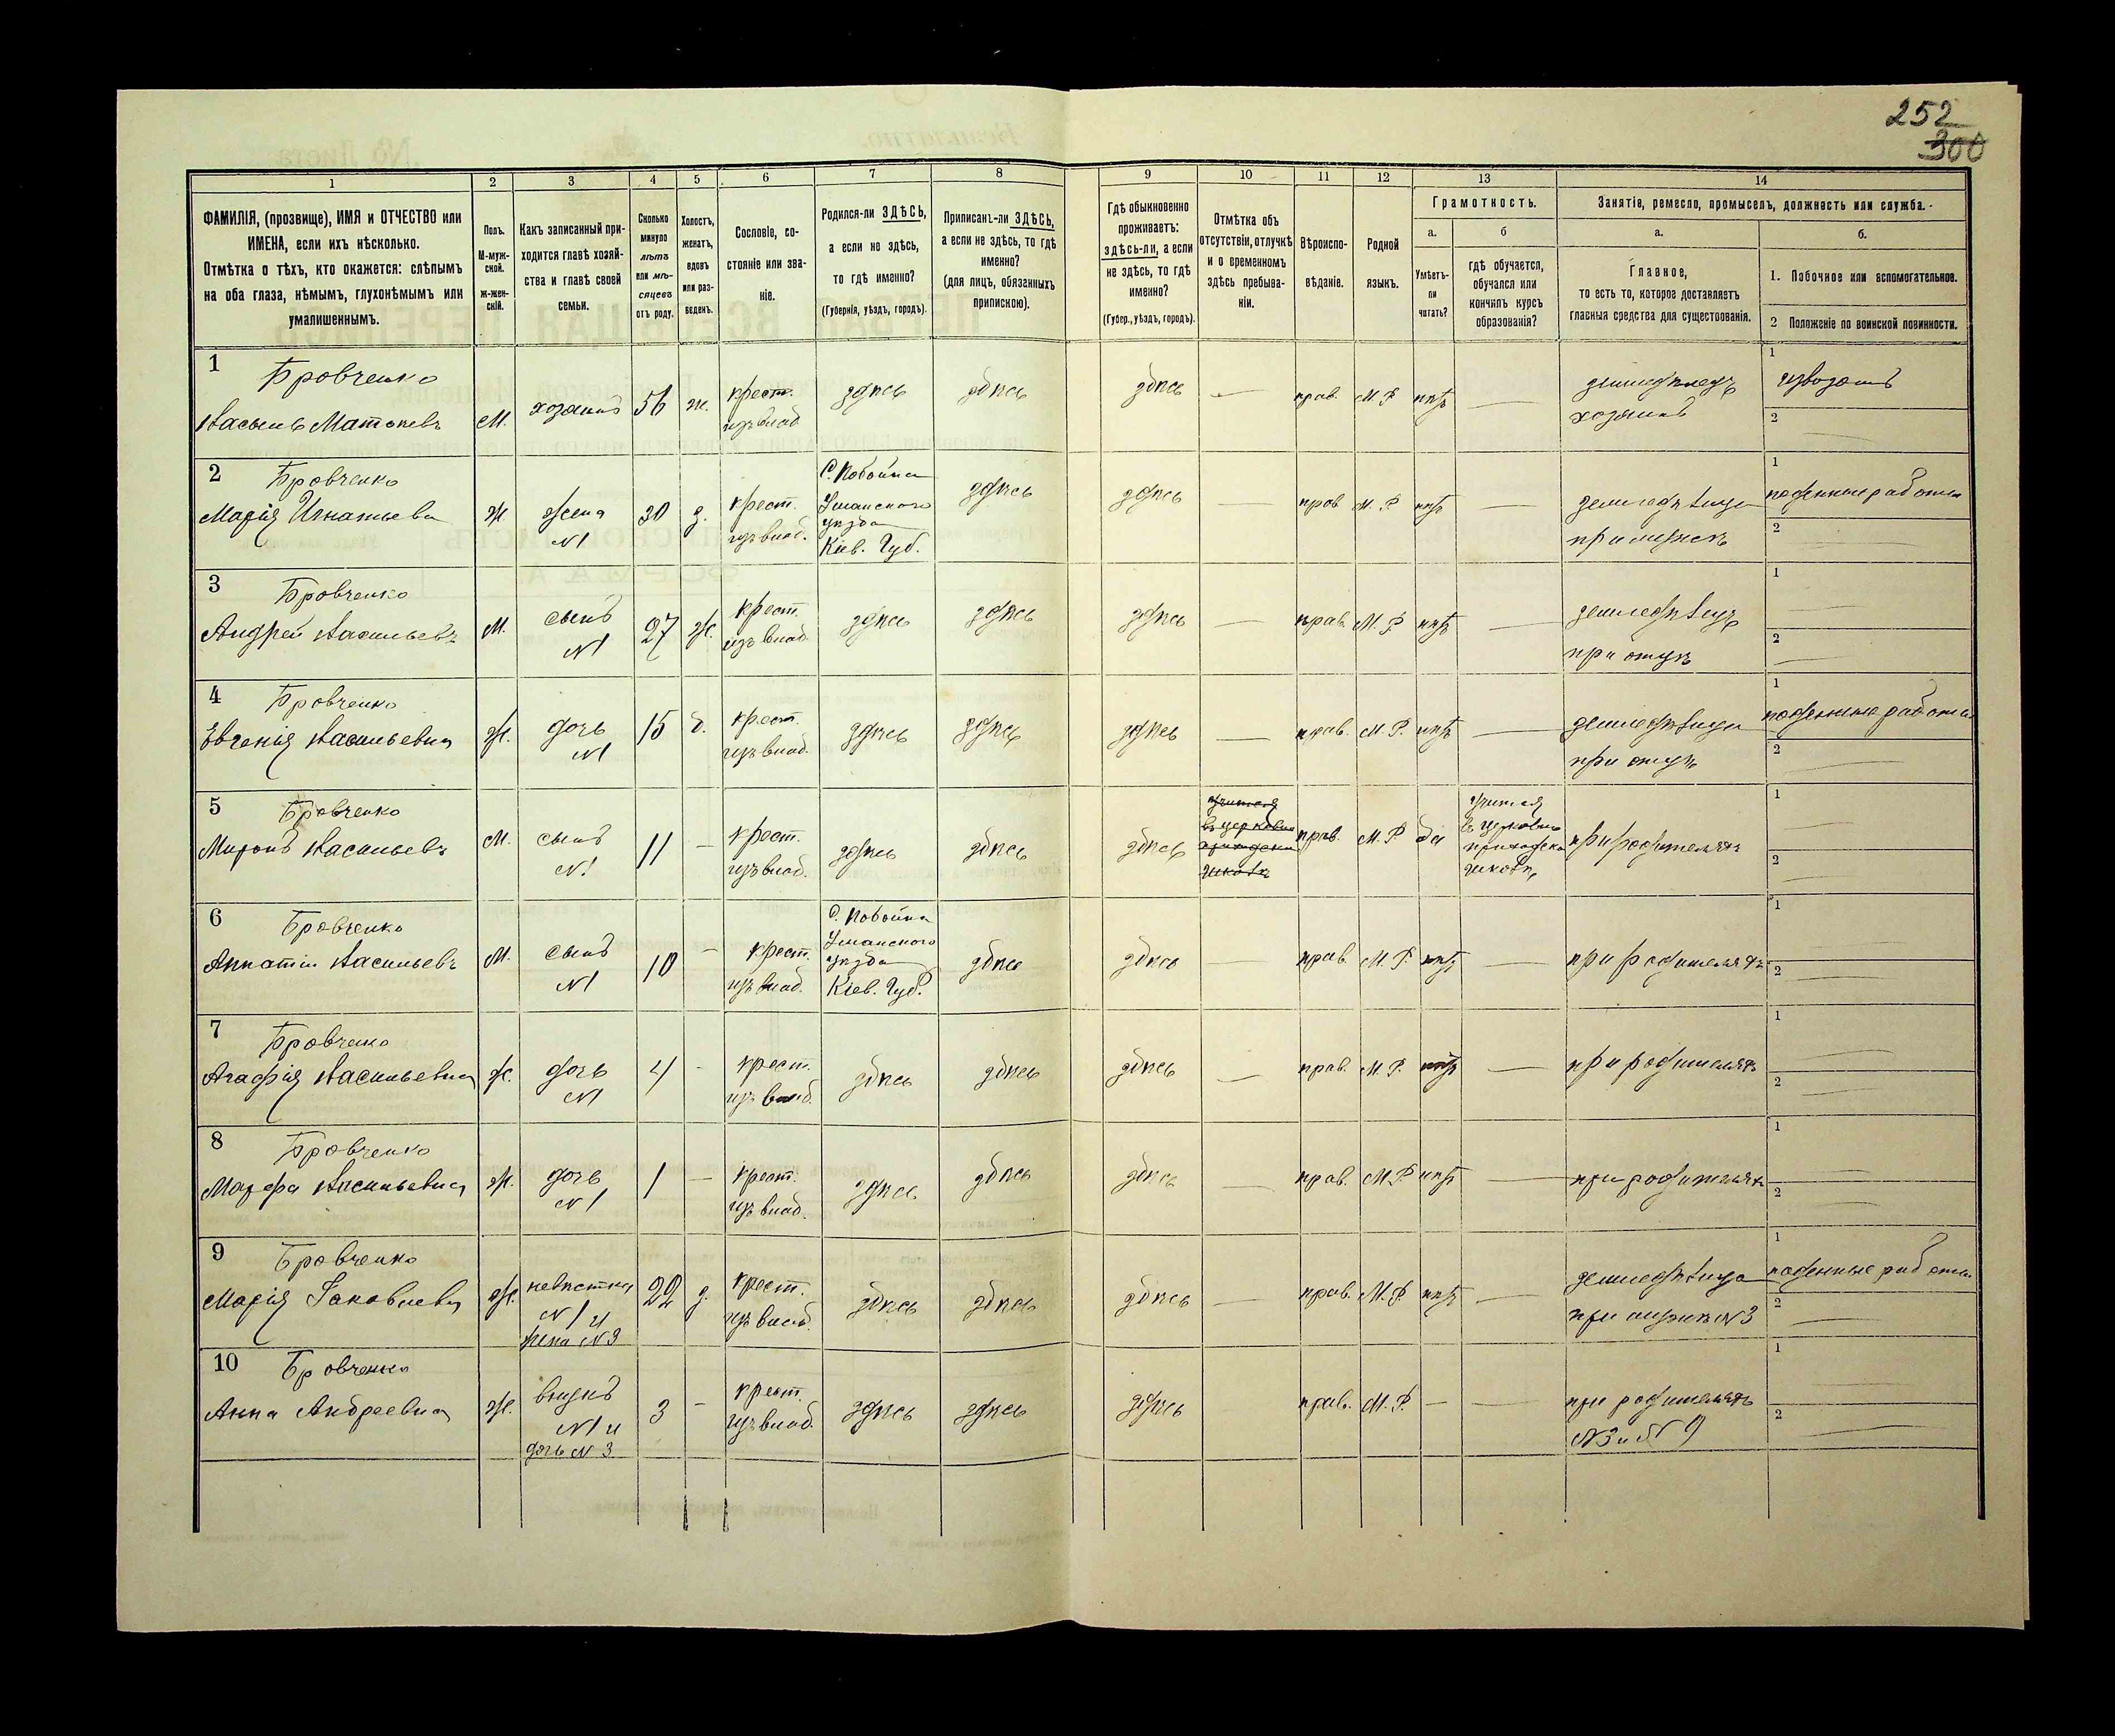 252
300
1
2
3
4
5
6
7
8
9
10
11
12
13
14
ФАМИЛІЯ, (прозвище), ИМЯ и ОТЧЕСТВО или
ИМЕНА, если ихъ нѣсколько.
Отмѣтка о тѣхъ, кто окажется: слѣпымъ
на оба глаза, нѣмымъ, глухонѣмымъ или
умалишеннымъ.
Полъ.
М-муж-
ской.
ж-жен-
скій.
Какъ записанный при-
ходится главѣ хозяй-
ства и главѣ своей
семьи.
Сколько
минуло
лѣтъ
или мѣ-
сяцевъ
отъ роду.
Холостъ,
женатъ,
вдовъ
или раз-
веденъ.
Сословіе, со-
стояніе или зва-
ніе.
Родился-ли ЗДѢСЬ,
а если не здѣсь,
то гдѣ именно?
(Губернія, уѣздъ, городъ).
Приписанъ-ли ЗДѢСЬ,
а если не здѣсь, то гдѣ
именно?
(для лицъ, обязанныхъ
припискою).
Гдѣ обыкновенно
проживаетъ:
здѣсь-ли, а если
не здѣсь, то гдѣ
именно?
(Губер., уѣздъ, городъ).
Отмѣтка объ
отсутствіи, отлучкѣ
и о временномъ
здѣсь пребыва-
ніи.
Вѣроиспо-
вѣданіе.
Родной
языкъ.
Грамотность.
а.
Умѣетъ-
ли
читать?
б
гдѣ обучается,
обучался или
кончилъ курсъ
образованія?
Занятіе, ремесло, промыселъ, должность или служба.
а.
Главное,
то есть то, которое доставляетъ
главныя средства для существованія.
б.
1. Побочное или вспомогательное.
2 Положеніе по воинской повинности.
1
Бровченко
Василь
М.
хозяинъ
56
ж.
крест.
изъ влад.
здѣсь
здѣсь
здѣсь
—
прав.
М. Р.
нѣтъ
—
хозяинъ
1
извозомъ
2
2
Бровченко
Марія Игнатьева
ж
жена
N1
30
з.
крест.
изъ влад.
Уманского
уѣзда
Кіев. Губ.
здѣсь
здѣсь
—
прав
М. Р
нѣтъ
—
земледѣлица
при мужѣ
1
поденные работы
2
3
Бровченко
Андрей Васильевъ
М.
сынъ
N1
27
ж.
крест.
изъ влад.
здѣсь
здѣсь
здѣсь
—
прав.
М. Р.
нѣтъ
—
земледѣлецъ
при отцѣ
1
2
4
Бровченко
Евгенья Васильевна
ж.
дочь
N1
15
крест.
изъ влад.
здѣсь
здѣсь
здѣсь
—
прав.
М. Р.
нѣтъ
—
земледѣлица
при отцѣ
1
поденные работы
2
5
Бровченко
Миронъ Васильевъ
М.
сынъ
N1
11
—
крест.
изъ влад.
здѣсь
здѣсь
здѣсь
учится
въ церковно
приходской
школѣ
прав.
М. Р
да
учится
въ церковно
приходско
школѣ
при родителяхъ
1
2
6
Бровченко
Васильевъ
М.
сынъ
N1
10
—
крест.
изъ влад.
Уманского
уѣзда
Кіев. Губ.
здѣсь
здѣсь
—
прав.
М. Р.
нѣтъ
—
при родителяхъ
1
2
7
Бровченко
Агафія Васильевна
ж.
дочь
N1
4
-
крест.
изъ влад.
здѣсь
здѣсь
здѣсь
—
прав.
М. Р.
нѣтъ
—
при родителяхъ
1
2
8
Бровченко
Марфа Васильевна
ж.
дочь
N1
1
—
крест.
изъ влад.
здѣсь
здѣсь
здѣсь
—
прав.
М. Р.
нѣтъ
—
при родителяхъ
1
2
9
Бровченко
Марія Іаковлева
ж.
невѣстка
N1 и
жена N3
22
з.
крест.
изъ влад.
здѣсь
здѣсь
здѣсь
—
прав.
М. Р.
нѣтъ
—
земледѣлица
при мужѣ N3
1
поденные работы
2
10
Бровченко
Анна Андреевна
ж.
N1 и
дочь N3
3
-
крест.
изъ влад.
здѣсь
здѣсь
здѣсь
прав.
М. Р.
—
—
при родителяхъ
N3 и N9
1
2